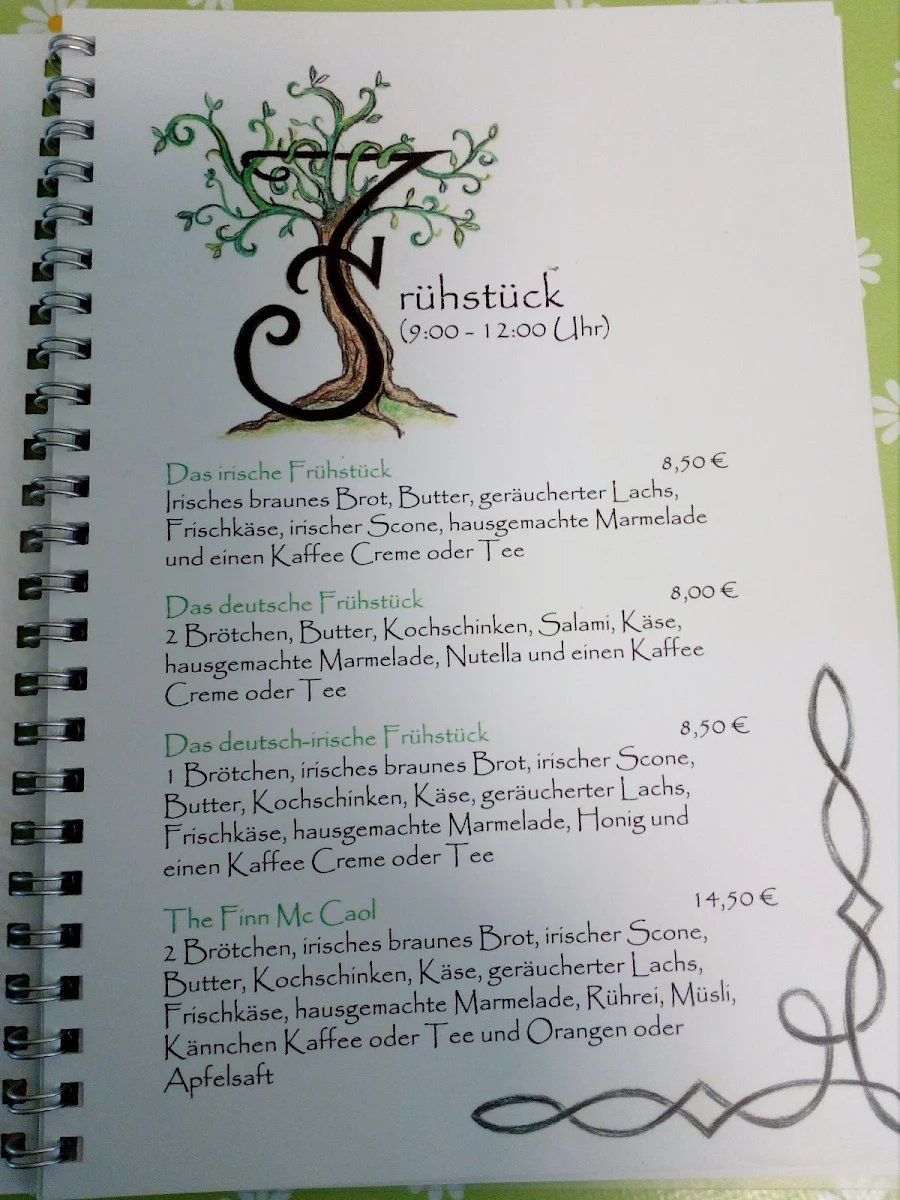 Frühstück
(9:00 - 12:00 Uhr)
Das irische Frühstück 8,50 €
Irisches braunes Brot, Butter, geräucherter Lachs,
Frischkäse, irischer Scone, hausgemachte Marmelade
und einen Kaffee Creme oder Tee
Das deutsche Frühstück 8,00 €
2 Brötchen, Butter, Kochschinken, Salami, Käse,
hausgemachte Marmelade, Nutella und einen Kaffee
Creme oder Tee
Das deutsch-irische Frühstück 8,50 €
1 Brötchen, irisches braunes Brot, irischer Scone,
Butter, Kochschinken, Käse, geräucherter Lachs,
Frischkäse, hausgemachte Marmelade, Honig und
einen Kaffee Creme oder Tee
The Finn Mc Caol 14,50 €
2 Brötchen, irisches braunes Brot, irischer Scone,
Butter, Kochschinken, Käse, geräucherter Lachs,
Frischkäse, hausgemachte Marmelade, Rührei, Müsli,
Kännchen Kaffee oder Tee und Orangen oder
Apfelsaft